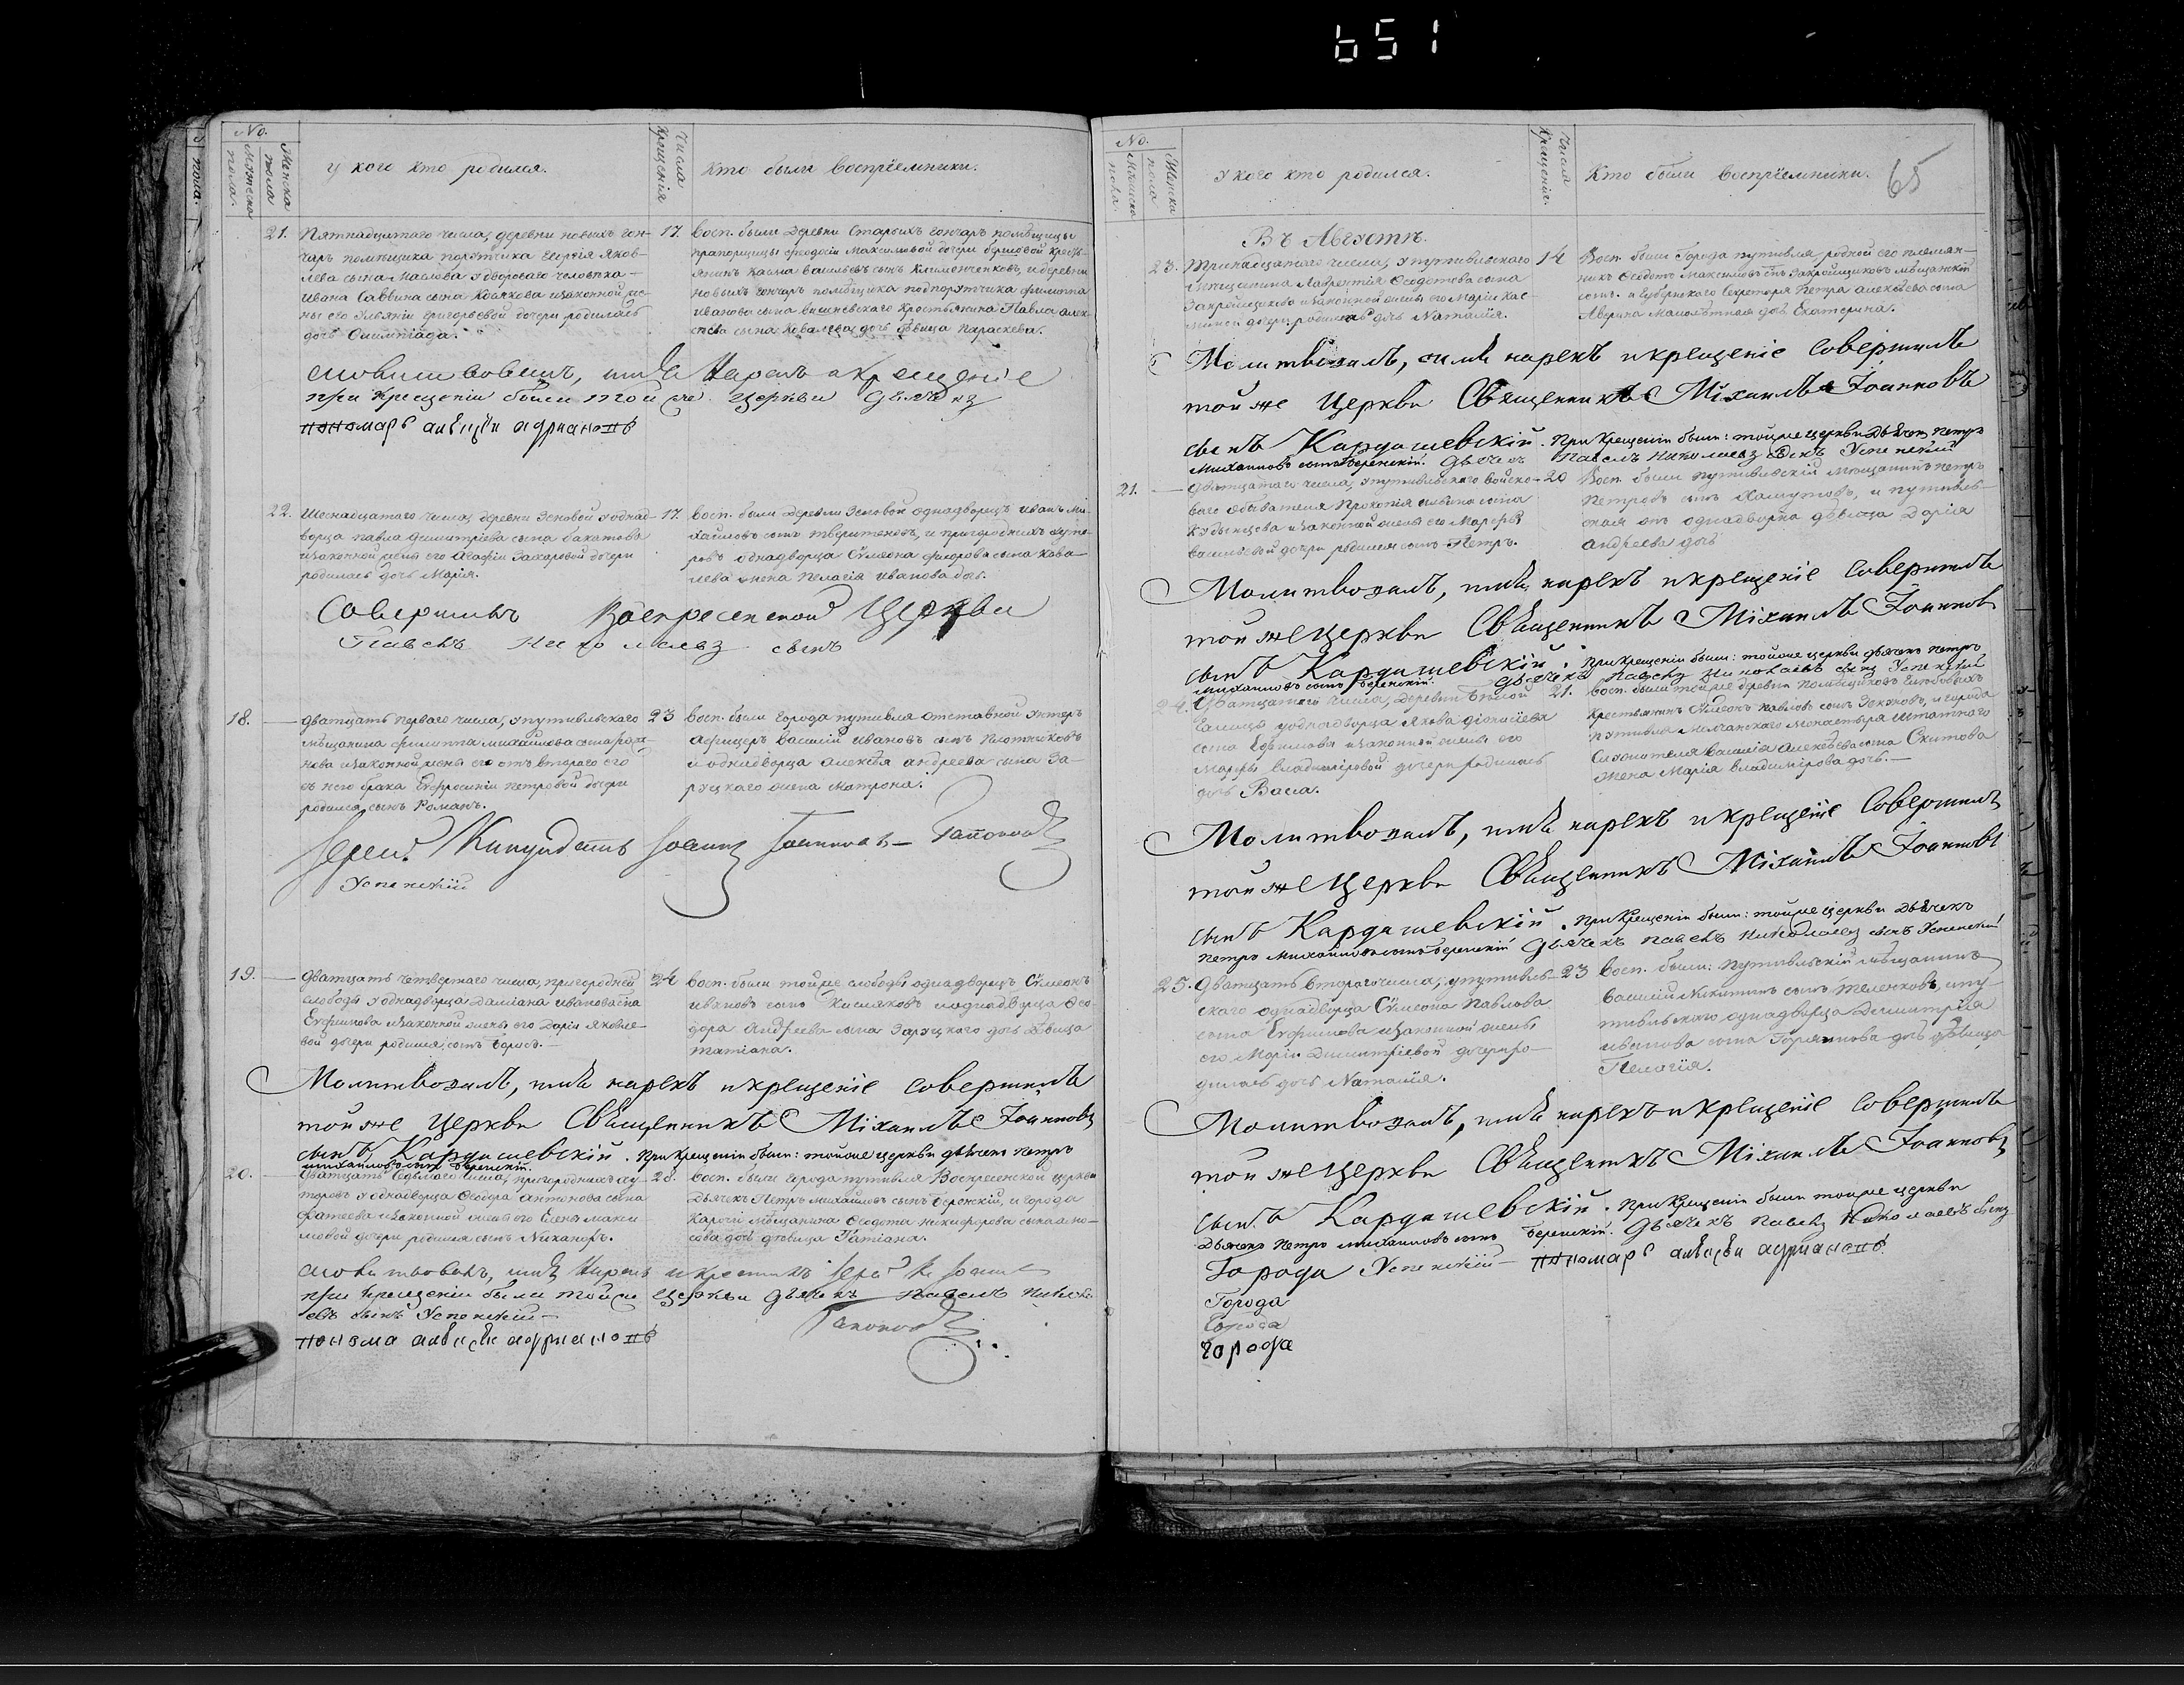 651
No.
Мужеска пола.
Женска пола
у кого кто родился.
Числа крещенія
Кто были воспріемники.
21. Пятнадцатаго числа, деревни новыхъ гон-
чаръ помѣщика порутчика Георгія Яков-
лева сына Маслова удвороваго человѣка
Ивана Саввина сына изаконной же-
ны его Ульяніи Григорьевой дочери родилась
дочь Олимпіада.
17. Восп. были деревни Старыхъ гончаръ помѣщицы
прапорщицы Феодосіи Максимовой дочери кресть-
янинъ Касма Васильевъ сынъ Клименченковъ, идеревни
новыхъ гончаръ помѣщика подпорутчика Филиппа
Иванова сына Вишневскаго крестьянина Павла Алек-
сѣева сына Ковалева дочь дѣвица Параскева.
имя Нарекъ и крещеніе
при Крещеніи были той же Церкви Дьячекъ
пономарь алеѯѣй адриановъ
22. Шеснадцатаго числа, деревни Эсновой уоднад-
ворца Павла Димитріева сына Бакатова
изаконной жены его Агафіи Захаровой дочери
родилась дочь Марія.
17. Восп. были деревни Эсновой однадворецъ Иванъ Ми-
хайловъ сынъ и пригородныхъ хуто-
ровъ однадворца Сѵмеона Федорова сына Кова-
лева жена Пелагія Иванова дочь.
Совершивъ Воскресенской Церкви
Павелъ Николаевъ сынъ
18. Дватцать перваго числа, упутивльскаго
мѣщанина Филиппа Михайлова сына
изаконной жены его отъ втораго его
съ нею брака Евфросиніи Петровой дочери
родился сынъ Романъ.
23 Восп. были города путивля отставной унтеръ
афицеръ Василій Ивановъ сынъ Плотниковъ
и однадворца Алексѣя Андреева сына За-
руцкаго жена Матрона.
Іерей Кандидатъ Іоаннъ Іоанновъ Гапоновъ
Успенскій
19. Дватцать четвертаго числа, пригородней
слободы уоднадворца Даміана Иванова сына
Евфимова изаконной жены его Даріи Яковле-
вой дочери родился сынъ Борисъ.
24 Восп. были тойже слободы однадворецъ Сѵмеонъ
Ивановъ сынъ Кисляковъ иоднадворца Фео-
дора Андреева сына Заруцкаго дочь Дѣвица
Татіана.
Молитвовалъ, имя нарекъ икрещеніе совершилъ
той же Церкви Священникъ Міхаилъ Іоанновъ
сынъ Кардашевскій. При Крещеніи были: тойже церкви дьячекъ Петръ
Михайловъ сынъ Бережскій.
20. Дватцать Седьмаго числа, пригородныхъ ху-
торовъ уоднадворца Феодора Антонова сына
Фатеева изаконной жены его Елены Макси-
мовой дочери родился сынъ Никаноръ.
28. Восп. были города путивля Воскресенской церкви
Дьячекъ Петръ Михайловъ сынъ Бережскій, и города
Карочи мѣщанина Феодота Никифорова сына
дочь дѣвица Татіана.
имя Нарекъ икрестилъ Іерей
при Крещеніи были тойже Церкви Дьячекъ Павелъ Никола-
евъ сынъ Успенскій
Гапоновъ
понома алеѯѣи адриановъ
No.
Мужеска пола.
Женска пола
у кого кто родился.
Числа крещенія.
Кто были воспріемники.
65
Въ Августѣ.
23. Тринадцатаго числа, упутивльскаго
мѣщанина Лаврентія Феодотова сына
Закройщикова изаконной жены его Маріи Кас-
миной дочери родилась дочь Наталія.
14 Восп. были Города путивля родной его племян-
никъ Феодотъ Максимовъ сынъ Закройщиковъ мѣщанскій
сынъ. и Губернскаго Секретаря Петра Алексѣева сына
Аверина малолѣтная дочь Екатерина.
Молитвовалъ, имя нарекъ икрещеніе совершилъ
той же Церкви Священникъ Міхаилъ Іоанновъ
сынъ Кардашевскій. При Крещеніи были: тойже церкви Дьячек Петръ
Михаиловъ сынъ Бережскій. Дьячекъ Павелъ Николаевъ сынъ Успенскій
21. Дватцатаго числа, упутивльскаго войско-
ваго обывателя Прокопія сына
Кудынцева изаконной жены его Марѳы
Васильевой дочери родился сынъ Петръ.
20 Восп. были путивльскій мѣщанинъ Петръ
Петровъ сынъ Хамутовъ, и путивль-
ская однадворка дѣвица Дарія
Андреева дочь
Молитвовалъ, имя нарекъ икрещеніе совершилъ
той же Церкви Священникъ Міхаилъ Іоанновъ
сынъ Кардашевскій. При Крещеніи были: тойже церкви дьячекъ Петръ
Михаиловъ сынъ Бережскій. Дьячекъ Павелъ Николаевъ сынъ Успенскій
24. Дватцатаго числа, деревни Бѣлой
Галицы уоднадворца Якова Діонисіева
сына Ефимова изаконной жены его
Марѳы Владиміровой дочери родилась
дочь Васса.
21. Восп. были тойже деревни Помѣщиковъ
крестьянинъ Сѵмеонъ Павловъ сынъ и города
путивля Молчанскаго монастыря штатнаго
служителя Василія Алексѣева сына Скитова
жена Марія Владимірова дочь.
Молитвовалъ, имя нарекъ икрещеніе совершилъ
той же Церкви Священникъ Міхаилъ Іоанновъ
сынъ Кардашевскій. При Крещеніи были: тойже церкви Дьячекъ
Петръ Михайловъ сынъ Бережскій Дьячекъ Павелъ Николаевъ сынъ Успенскій
25. Дватцать втораго числа, упутивль-
скаго однадворца Сѵмеона Павлова
сына Евфимова изаконной жены
его Маріи Димитріевой дочери ро-
дилась дочь Наталія.
23 Восп. были: путивльскій мѣщанинъ
Василій Никитинъ сынъ Теленковъ, ипу-
тивльскаго однадворца Димитрія
Иванова сына Горяинова дочь дѣвица
Пелагія.
Молитвовалъ, имя нарекъ икрещеніе совершилъ
той же Церкви Священникъ Міхаилъ Іоанновъ
сынъ Кардашевскій. При Крещеніи были тойже церкви
Дьячекъ Петръ Михаиловъ сынъ Бережскій. Дьячекъ Павелъ Николаевъ сынъ
Города Успенскій пономарь алеѯѣи адриановъ
Города
Города
города